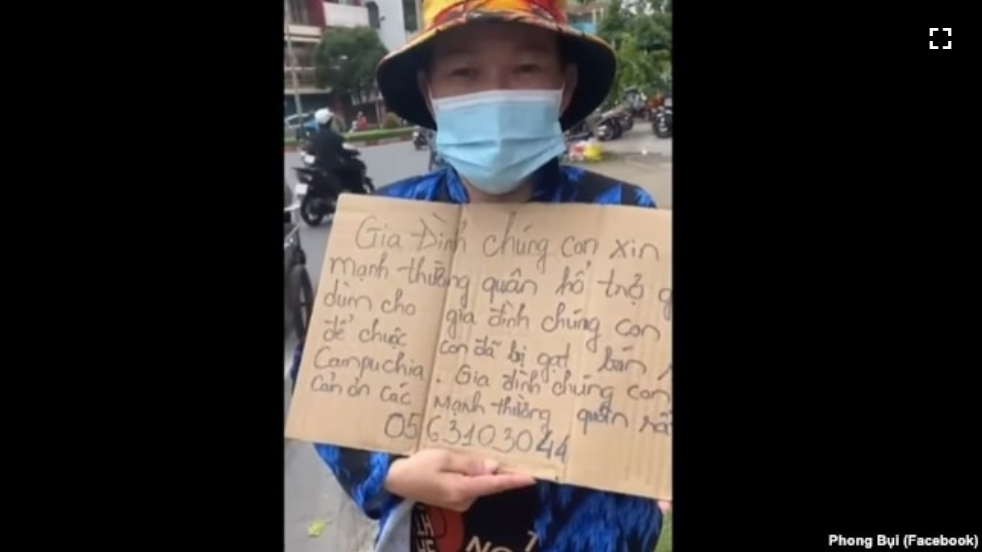 Gia Đình chúng con xin
mạnh thường quân hổ trợ g
dùm cho gia đình chúng con
để chuộc con đã bị gạt bán
Campuchia. Gia đình chúng con
cản ơn các mạnh thường quân rấ
0563103044
Phong Bụi (Facebook)